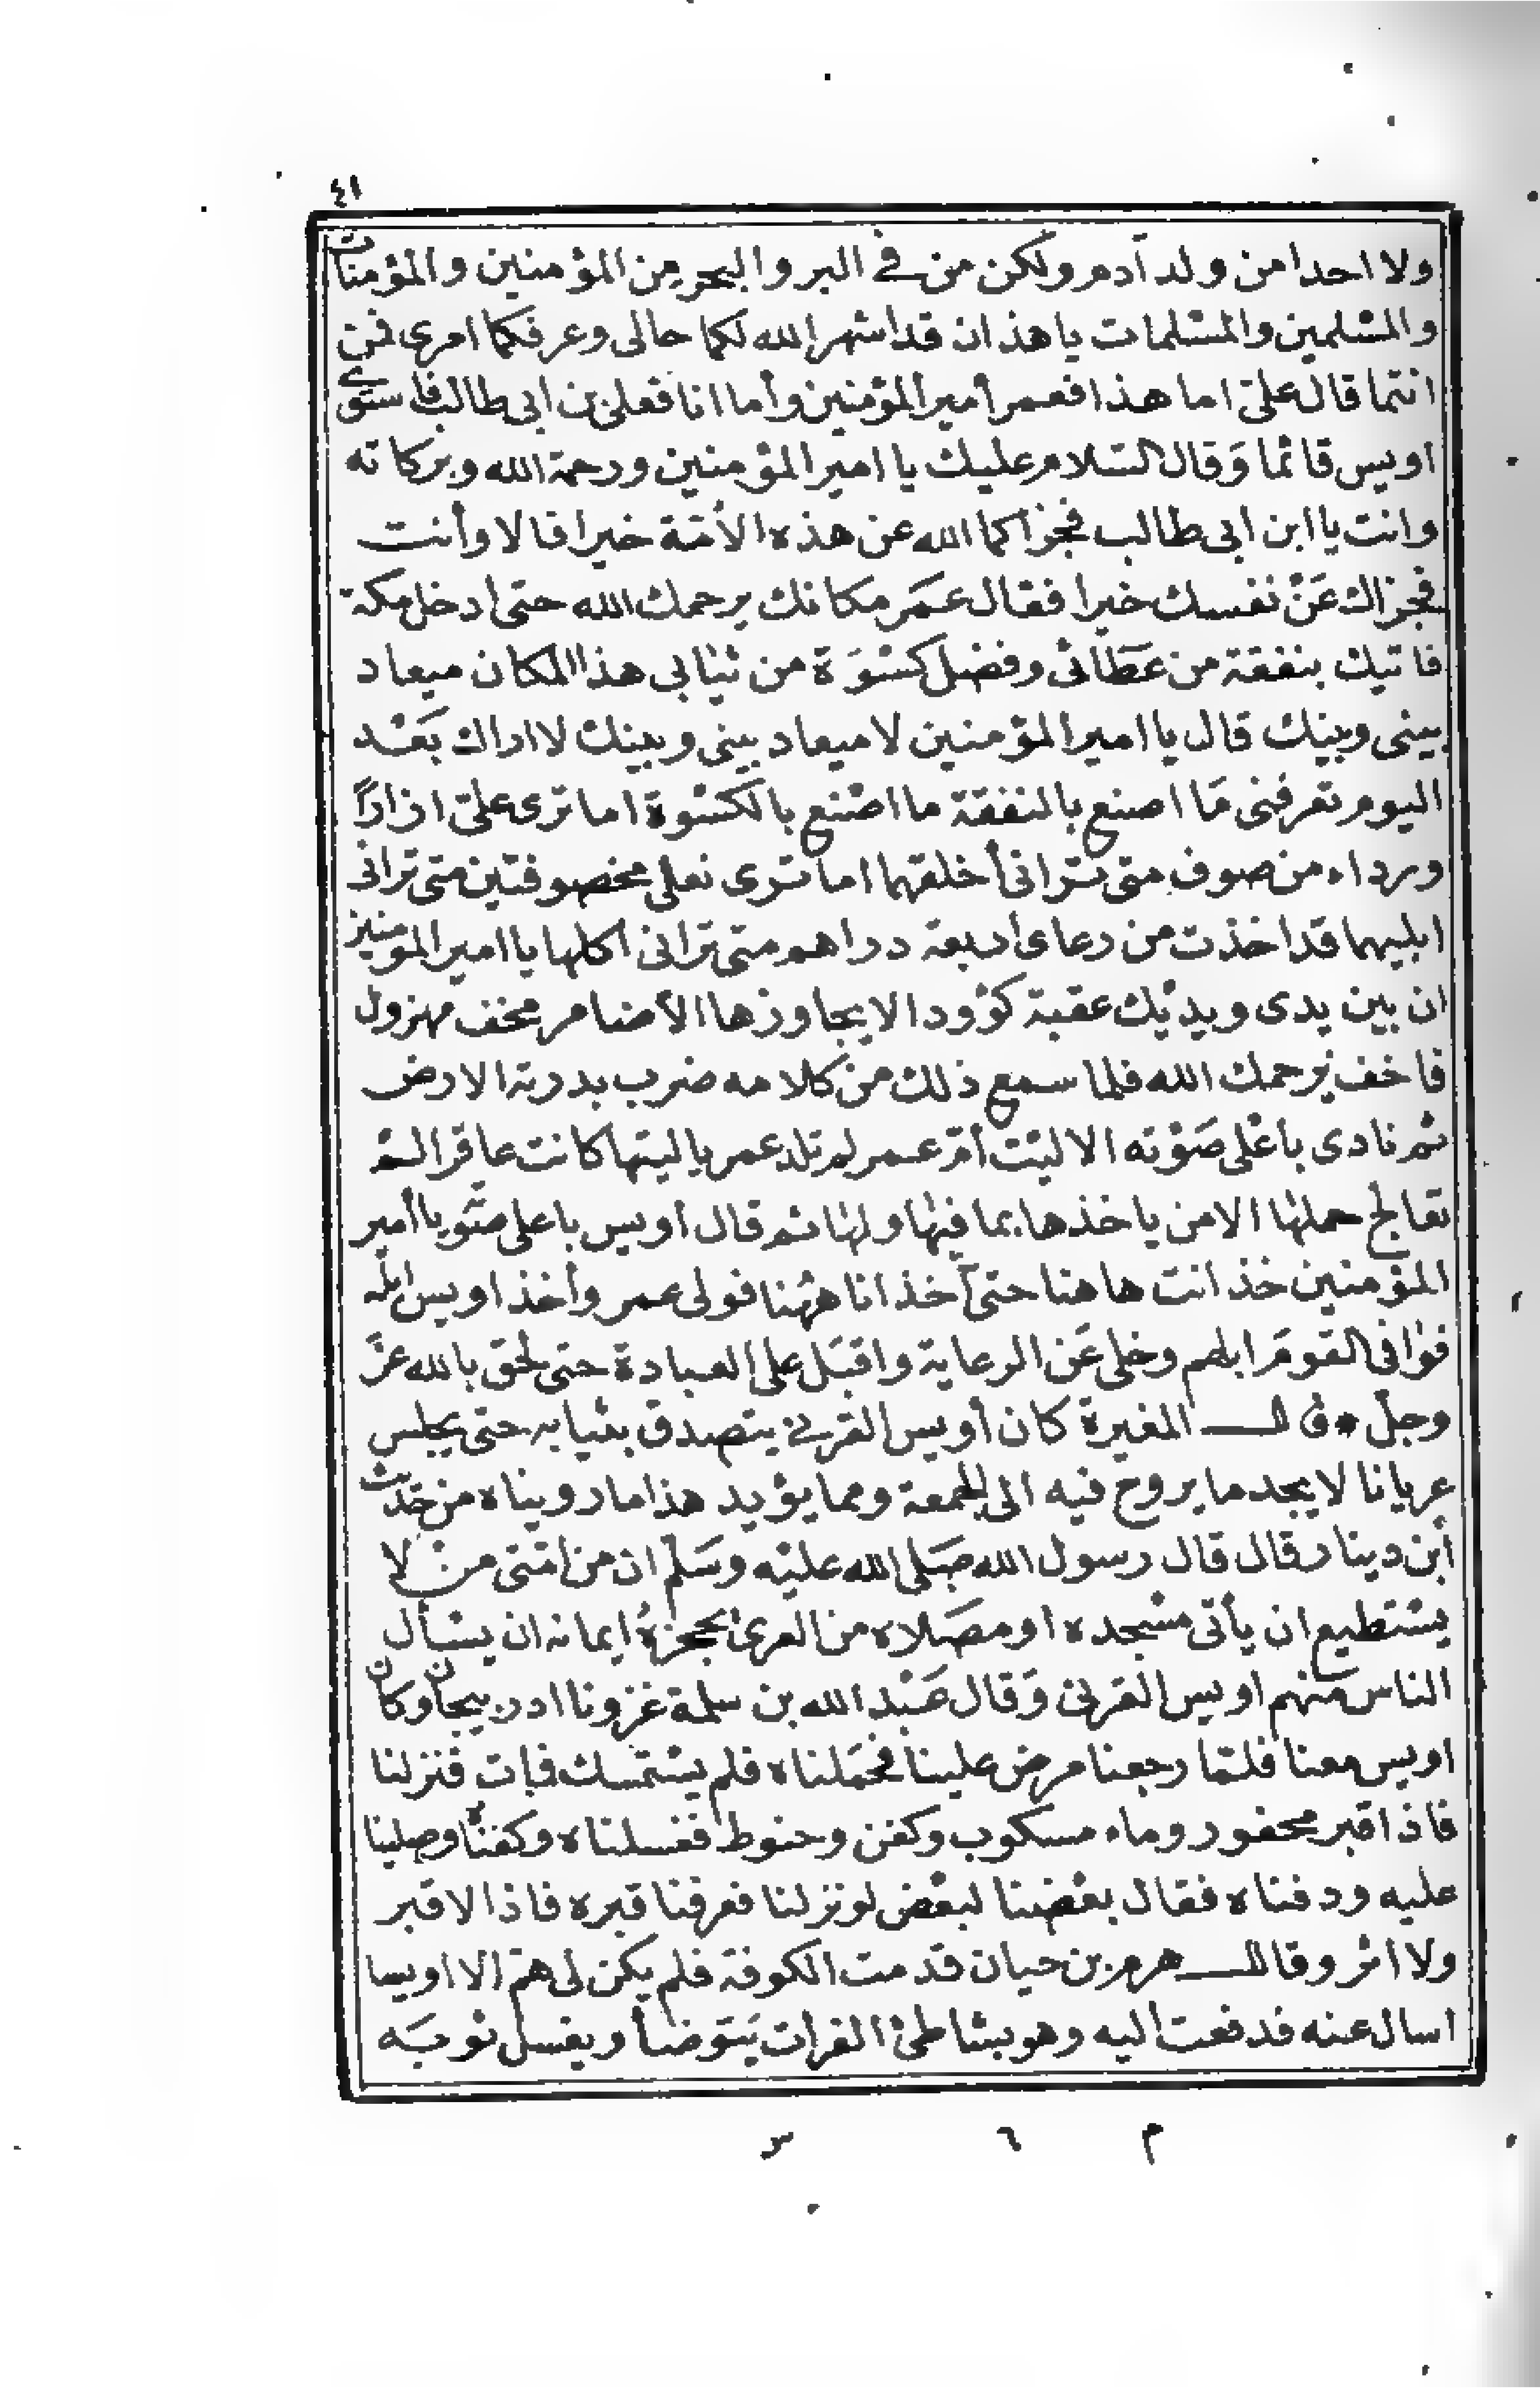 ٤١
ولا احدا من ولد آدم ولكن من في البر والبحر من المؤمنين والمؤمنات
والمسلمين والمسلمات يا هذان قد اشهر الله لكما حالى وعرفكما امرى فمن
انتما قال على اما هذا فعمر أمير المؤمنين وأما انا فعلى بن ابى طالب فاستوى
اويس قائما وَقال السلام عليك يا امير المؤمنين ورحمة الله وبركاته
وانت يا ابن ابى طالب فجزاكما الله عن هذه الأمّة خيرا قالا وأنت
فجزاك عَنْ نفسك خيرا فقال عمَر مكانك يرحمك الله حتى أدخل مكة
فاتيك بنفقة من عَطائى وفضل كسْوَة من ثيابى هذا المكان ميعاد
بينى وبينك قال يا امير المؤمنين لا ميعاد بينى وبينك لا اراك بَعْد
اليوم تعرفنى مَا اصنع بالنفقة ما اصْنع بالكسْوة اما ترى علىّ ازارًا
ورداء من صوف متى ترانى أخلقهما اما ترى نعلى مخصوفتين متى ترانى
ابليهما قد اخذت من رعاى أربعة دراهم متى ترانى اكلها يا امير المومنين
ان بين يدى ويديْك عقبة كؤودا لا يجاوزها الأضامر مخف مهزول
فاخف يرحمك الله فلما سمع ذلك من كلامه ضرب بدرته الارض
ثم نادى بأعْلى صَوْته الا ليْت أمّ عمر لم تلد عمر ياليتها كانت عاقرا لم
تعالج حملها الا من ياخذها بما فيها ولها ثم قال اويس باعلى صَوته يا أمير
المؤمنين خذ انت هاهنا حتى آخذ انا ههُنا فولى عمر وأخذ اويس ابله
فوافى القومَ ابلهم وخلى عَن الرعاية واقبَل على العبادة حتى لحق بالله عزّ
وجلّ * قال المغيرة كان أويس القرنى يتصدق بثيابه حتى يجلس
عريانا لا يجد ما يروح فيه الى الجمعة ومما يؤيد هذا ما رويناه من حَديث
أبن دينار قال قال رسول الله صَلى الله عليْه وسَلم ان من امّتى منْ لا
يسْتطيع ان يأتى مسْجده او مصَلاه من العرىْ يحجزهُ إيمانه ان يسْأل
الناس منهم اويس القرنى وَقال عَبْد الله بن سلمة غزونا ادربيجان وكان
اويس معنا فلمّا رجعنا مرض علينا فحمَلناه فلم يسْتمسك فمات فنزلنا
فاذا قبر محفور وماء مسكوب وكفن وحنوط فغسلناه وكفناه وصلينا
عليه ودفناه فقال بعْضنا لبعْض لو نزلنا فعرفنا قبره فاذا لا قبر
ولا اثر وقال هرم بن حيان قدمت الكوفة فلم يكن لى همّ الا اويسا
اسال عنه فدفعت اليه وهو بشاطئ الفرات يَتوضأ ويغسل ثوبَه
م ٦ س